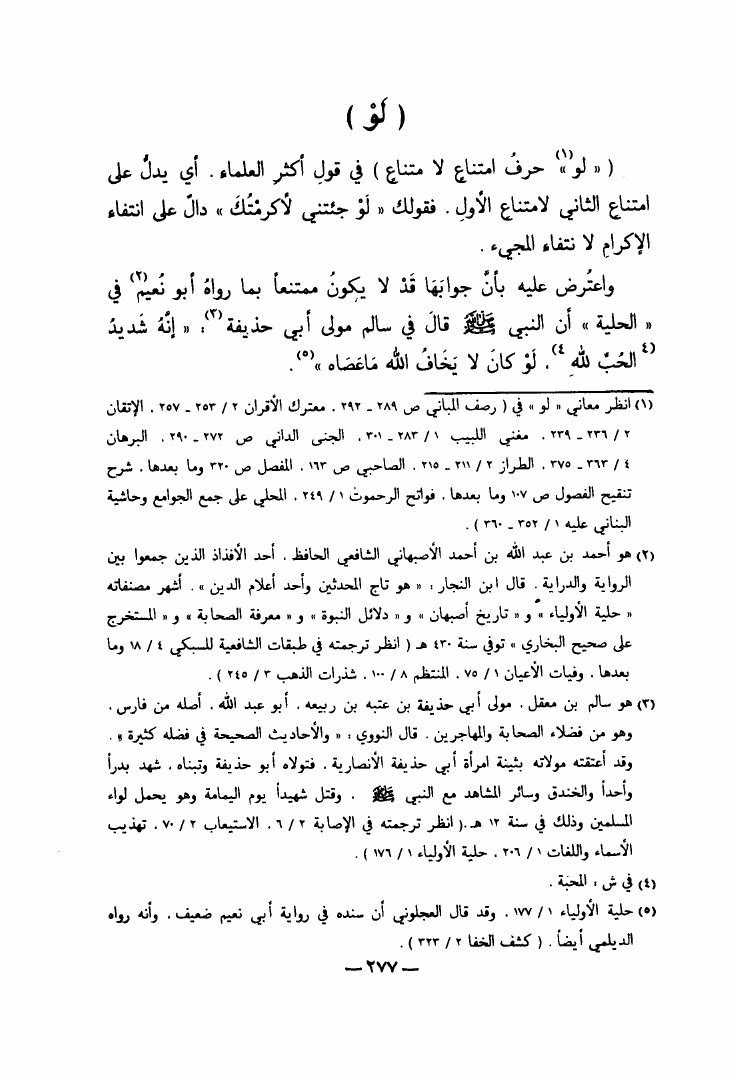 ( لَوْ )
( « لو »(١) حرفُ امتناعٍ لا متناعٍ ) في قولِ أكثرِ العلماء . أي يدلُّ على
امتناع الثاني لامتناع الأولِ . فقولك « لَوْ جئتني لأكرمْتُكَ » دالّ على انتفاء
الإكرامِ لا نتفاء المجيء .
واعتُرض عليه بأنَّ جوابَهَا قَدْ لا يكونُ ممتنعاً بما رواهُ أبو نُعيم(٢) في
« الحلية » أن النبي ﷺ قالَ في سالم مولى أبي حذيفة(٣) : « إنَّهُ شَديدُ
(٤ الحُبِّ للهِ ٤) ، لَوْ كانَ لا يَخَافُ الله مَاعَصَاه »(٥) .
(١) انظر معاني « لو » في ( رصف المباني ص ٢٨٩ ـ ٢٩٢ ، معترك الأقران ٢ / ٢٥٣ ـ ٢٥٧ ، الإتقان
٢ / ٢٣٦ ـ ٢٣٩ ، مغني اللبيب ١ / ٢٨٣ ـ ٣٠١ ، الجنى الداني ص ٢٧٢ ـ ٢٩٠ ، البرهان
٤ / ٣٦٣ ـ ٣٧٥ ، الطراز ٢ / ٢١١ ـ ٢١٥ ، الصاحبي ص ١٦٣ ، المفصل ص ٣٢٠ وما بعدها ، شرح
تنقيح الفصول ص ١٠٧ وما بعدها ، فواتح الرحموت ١ / ٢٤٩ ، المحلي على جمع الجوامع وحاشية
البناني عليه ١ / ٣٥٢ ـ ٣٦٠ ) .
(٢) هو أحمد بن عبد الله بن أحمد الأصبهاني الشافعي الحافظ ، أحد الأفذاذ الذين جمعوا بين
الرواية والدراية ، قال ابن النجار : « هو تاج المحدثين وأحد أعلام الدين » . أشهر مصنفاته
« حلية الأولياء » و « تاريخ أصبهان » و « دلائل النبوة » و « معرفة الصحابة » و « المستخرج
على صحيح البخاري » توفي سنة ٤٣٠ هـ ( انظر ترجمته في طبقات الشافعية للسبكي ٤ / ١٨ وما
بعدها ، وفيات الأعيان ١ / ٧٥ ، المنتظم ٨ / ١٠٠ ، شذرات الذهب ٣ / ٢٤٥ ) .
(٣) هو سالم بن معقل ، مولى أبي حذيفة بن عتبه بن ربيعه ، أبو عبد الله ، أصله من فارس ،
وهو من فضلاء الصحابة والمهاجرين . قال النووي : « والأحاديث الصحيحة في فضله كثيرة » .
وقد أعتقته مولاته بثينة امرأة أبي حذيفة الأنصارية ، فتولاه أبو حذيفة وتبناه ، شهد بدراً
وأحداً والخندق وسائر المشاهد مع النبي ﷺ . وقتل شهيداً يوم اليمامة وهو يحمل لواء
المسلمين وذلك في سنة ١٢ هـ . ( انظر ترجمته في الإصابة ٢ / ٦ ، الاستيعاب ٢ / ٧٠ ، تهذيب
الأسماء واللغات ١ / ٢٠٦ ، حلية الأولياء ١ / ١٧٦ ) .
(٤) في ش : المحبة .
(٥) حلية الأولياء ١ / ١٧٧ ، وقد قال العجلوني أن سنده في رواية أبي نعيم ضعيف ، وأنه رواه
الديلمي أيضاً . ( كشف الخفا ٢ / ٣٢٣ ) .
— ٢٧٧ —